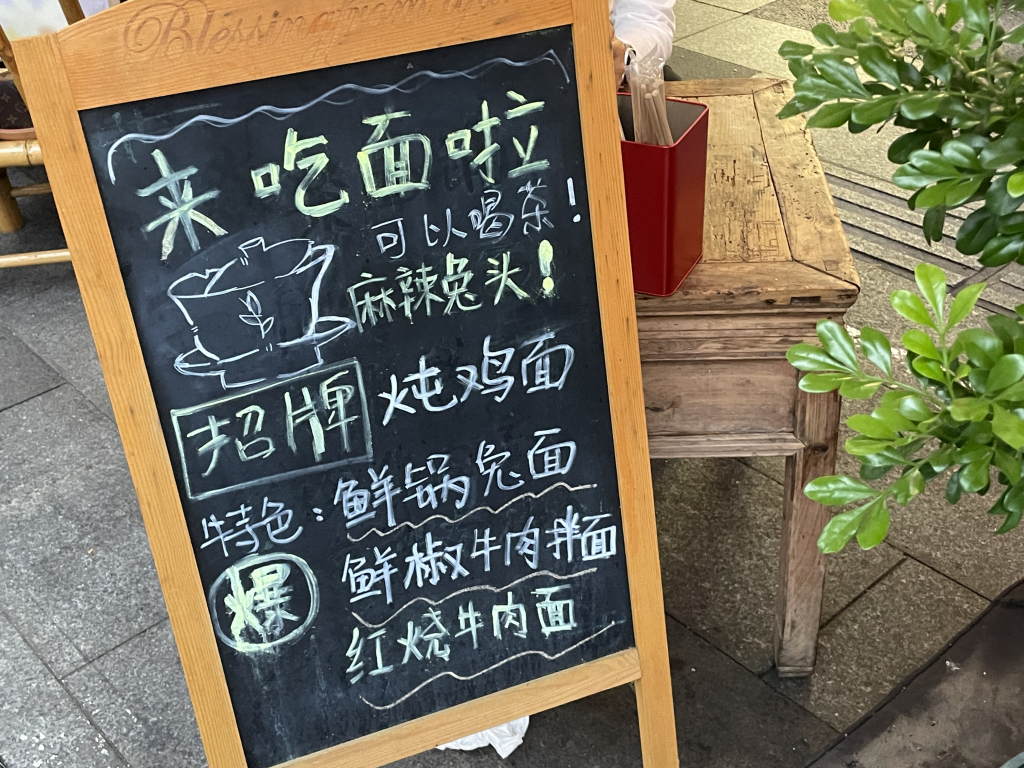 Blessing from
来吃面啦
可以喝茶!
麻辣兔头!
招牌 炖鸡面
特色: 鲜锅兔面
爆 鲜椒牛肉拌面
红烧牛肉面